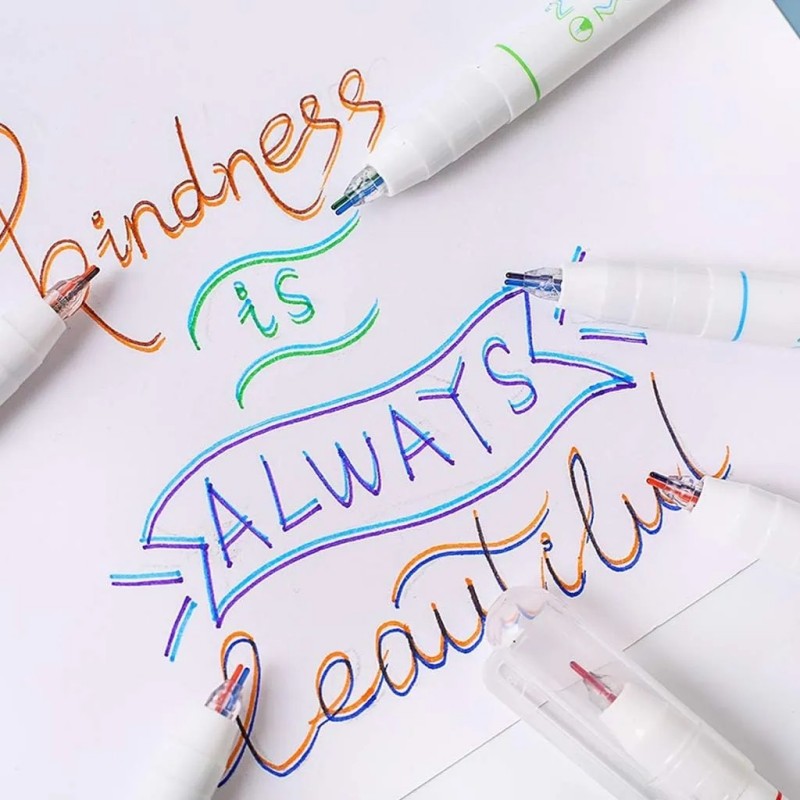 kindness
is
ALWAYS
beautiful